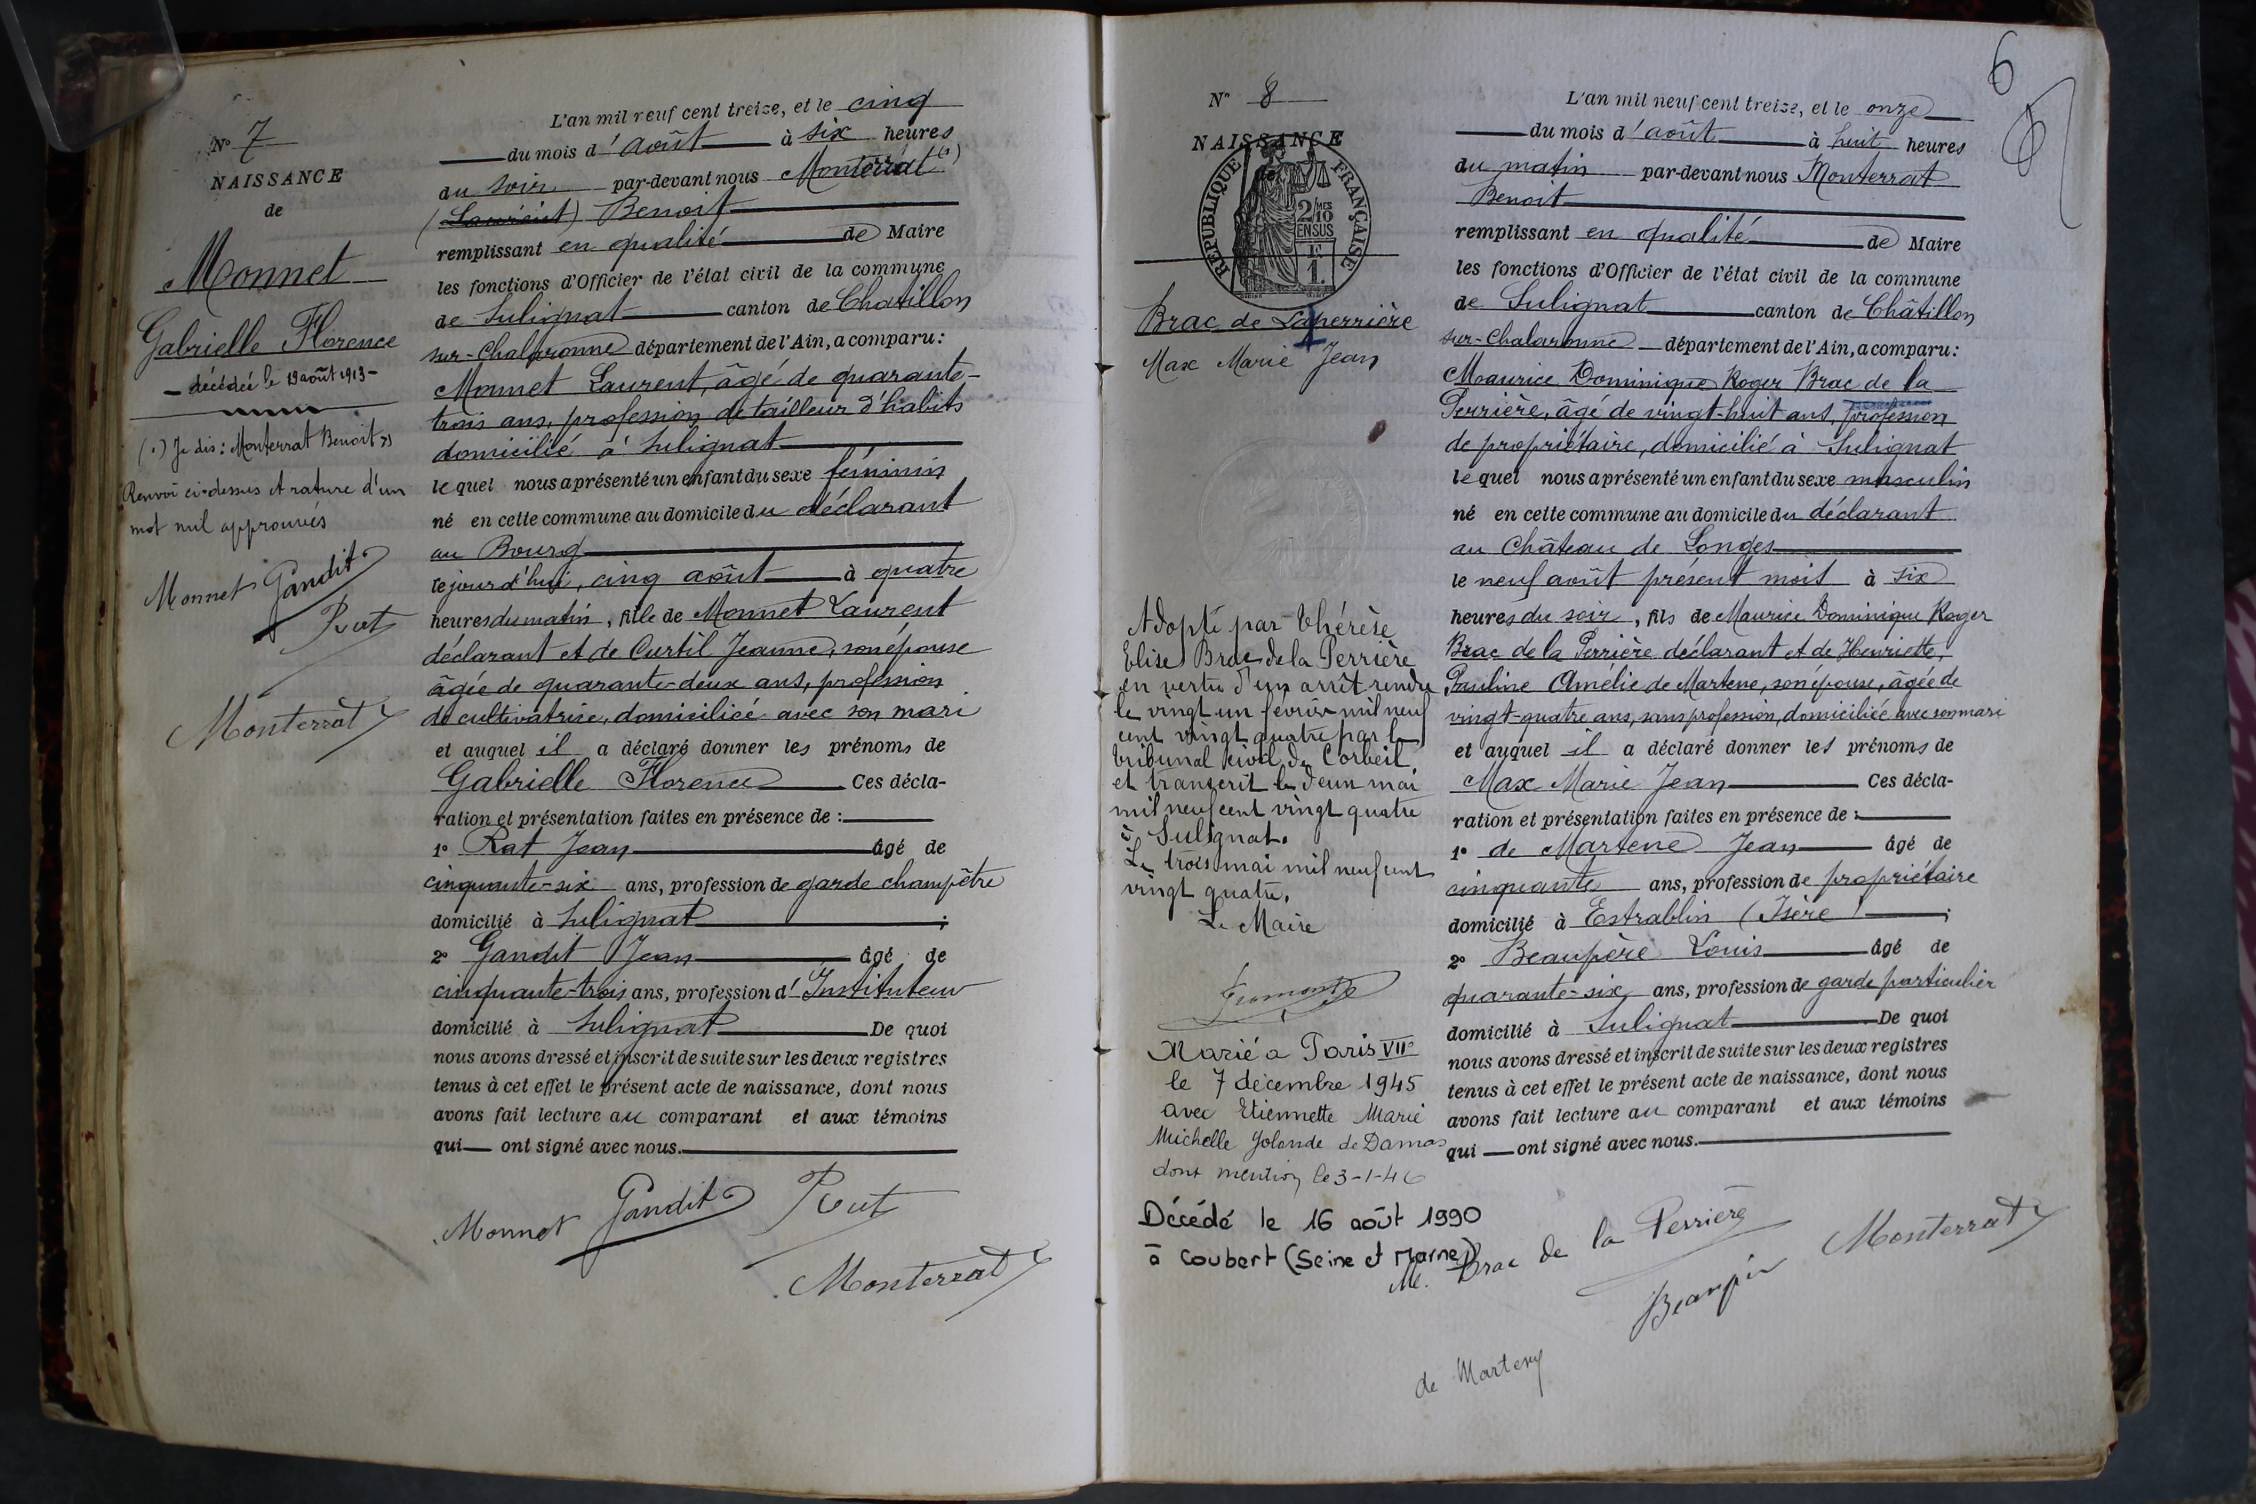 N° 7
NAISSANCE
de
Monnet
Gabrielle Florence
- décédée le 19 août 1913 -
(1) Je dis : Monterrat Benoit
Renvoi ci-dessus et rature d'un
mot nul approuvés
Monnet Gandit
Rat
Monterrat
L'an mil neuf cent treize, et le cinq
du mois d'août à six heures
du soir par-devant nous Monterrat (1)
() Benoit
remplissant en qualité de Maire
les fonctions d'Officier de l'état civil de la commune
de Sulignat canton de Chatillon
sur-Chalaronne département de l'Ain, a comparu :
Monnet Laurent, âgé de quarante-
trois ans, profession de tailleur d'habits
domicilié à Sulignat
lequel nous a présenté un enfant du sexe féminin
né en cette commune au domicile du déclarant
au Bourg
le jourd'hui, cinq août à quatre
heures du matin, fille de Monnet Laurent
déclarant et de Curtil Jeanne, son épouse
âgée de quarante-deux ans, profession
de cultivatrice, domiciliée avec son mari
et auquel il a déclaré donner les prénoms de
Gabrielle Florence Ces décla-
ration et présentation faites en présence de :
1° Rat Jean âgé de
cinquante-six ans, profession de garde champêtre
domicilié à Sulignat ;
2° Gandit Jean âgé de
cinquante-trois ans, profession d'Instituteur
domicilié à Sulignat De quoi
nous avons dressé et inscrit de suite sur les deux registres
tenus à cet effet le présent acte de naissance, dont nous
avons fait lecture au comparant et aux témoins
qui ont signé avec nous.
Monnet Gandit Rat
Monterrat
6
N° 8
NAISSANCE
de
RÉPUBLIQUE FRANÇAISE
2/10 MES
EN SUS
1F.
Brac de Laperrière
Max Marie Jean
Adopté par Thérèse
Elise Brac de la Perrière
en vertu d'un arrêt rendu
le vingt un fevrier mil neuf
cent vingt quatre par le
tribunal civil de Corbeil
et transcrit le deux mai
mil neuf cent vingt quatre
à Sulignat.
Le trois mai mil neuf cent
vingt quatre.
Le Maire
Marié à Paris VIIe
le 7 décembre 1945
avec Etiennette Marie
Michelle Yolande de Damas
dont mention le 3-1-46
Décédé le 16 août 1990
à Coubert (Seine et Marne)
L'an mil neuf cent treize, et le onze
du mois d'août à huit heures
du matin par-devant nous Monterrat
Benoit
remplissant en qualité de Maire
les fonctions d'Officier de l'état civil de la commune
de Sulignat canton de Châtillon
sur-Chalaronne département de l'Ain, a comparu :
Maurice Dominique Roger Brac de la
Perrière, âgé de vingt-huit ans, profession
de propriétaire, domicilié à Sulignat
lequel nous a présenté un enfant du sexe masculin
né en cette commune au domicile du déclarant
au Château de Longes
le neuf août présent mois à six
heures du soir, fils de Maurice Dominique Roger
Brac de la Perrière déclarant et de Henriette,
Pauline Amélie de Martene, son épouse, âgée de
vingt-quatre ans, sans profession, domiciliée avec son mari
et auquel il a déclaré donner les prénoms de
Max Marie Jean Ces décla-
ration et présentation faites en présence de :
1° de Martene Jean âgé de
cinquante ans, profession de propriétaire
domicilié à Estrablin (Isère) ;
2° Beaupère Louis âgé de
quarante-six ans, profession de garde particulier
domicilié à Sulignat De quoi
nous avons dressé et inscrit de suite sur les deux registres
tenus à cet effet le présent acte de naissance, dont nous
avons fait lecture au comparant et aux témoins
qui ont signé avec nous.
M. Brac de la Perrière Monterrat
Beaupère
de Martene